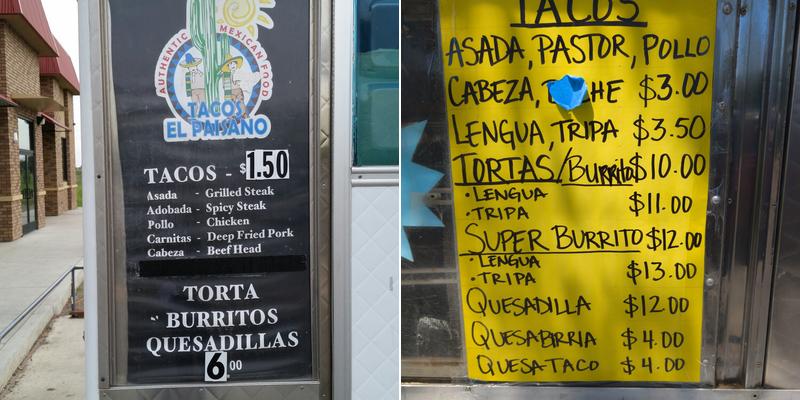 AUTHENTIC MEXICAN FOOD
TACOS
EL PAISANO
TACOS - $1.50
Asada - Grilled Steak
Adobada - Spicy Steak
Pollo - Chicken
Carnitas - Deep Fried Pork
Cabeza - Beef Head
TORTA
BURRITOS
QUESADILLAS
6.00
TACOS
ASADA, PASTOR, POLLO
CABEZA, $3.00
LENGUA, TRIPA $3.50
TORTAS/Burrito $10.00
• LENGUA $11.00
• TRIPA
SUPER BURRITO $12.00
• LENGUA
• TRIPA $13.00
QUESADILLA $12.00
QUESABIRRIA $4.00
QUESA-TACO $4.00